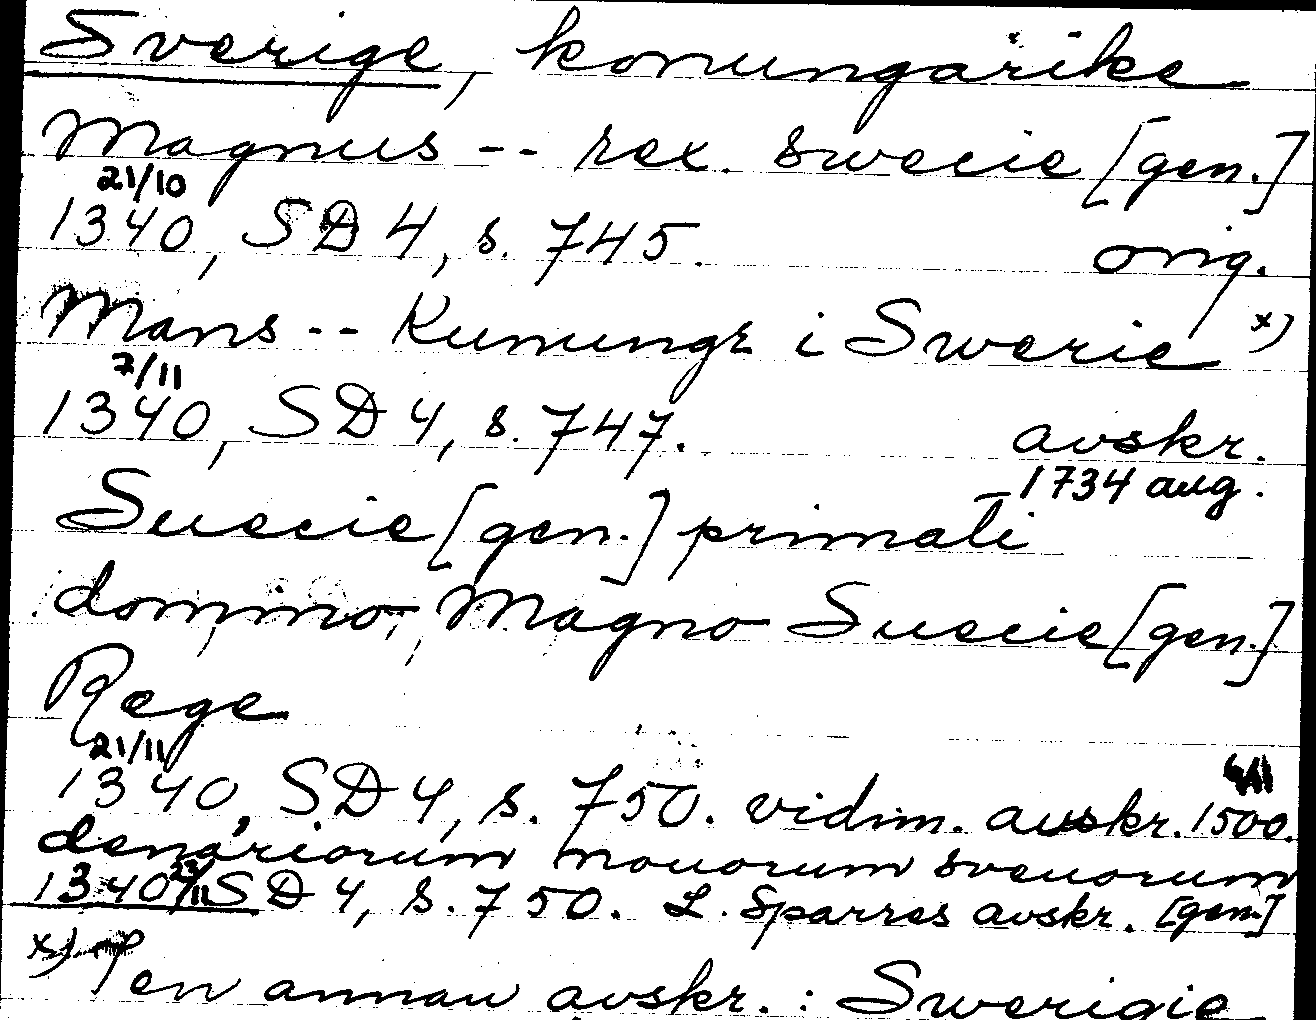 Sverige, konungarike
Magnus -- rex. Swecie [gen.]
21/10
1340, SD 4, s. 745. orig.
Mans -- Kunungr i Swerie x)
7/11
1340, SD 4, s. 747. avskr.
1734 aug.
Suecie [gen.] primati
domino, Magno Suecie [gen.]
Rege
21/11
1340, SD 4, s. 750. vidim. avskr. 1500.
denariorum nouorum sveuorum
1340 23/11 SD 4, s. 750. L. Sparres avskr. [gen.]
x) I en annan avskr. : Swerigie